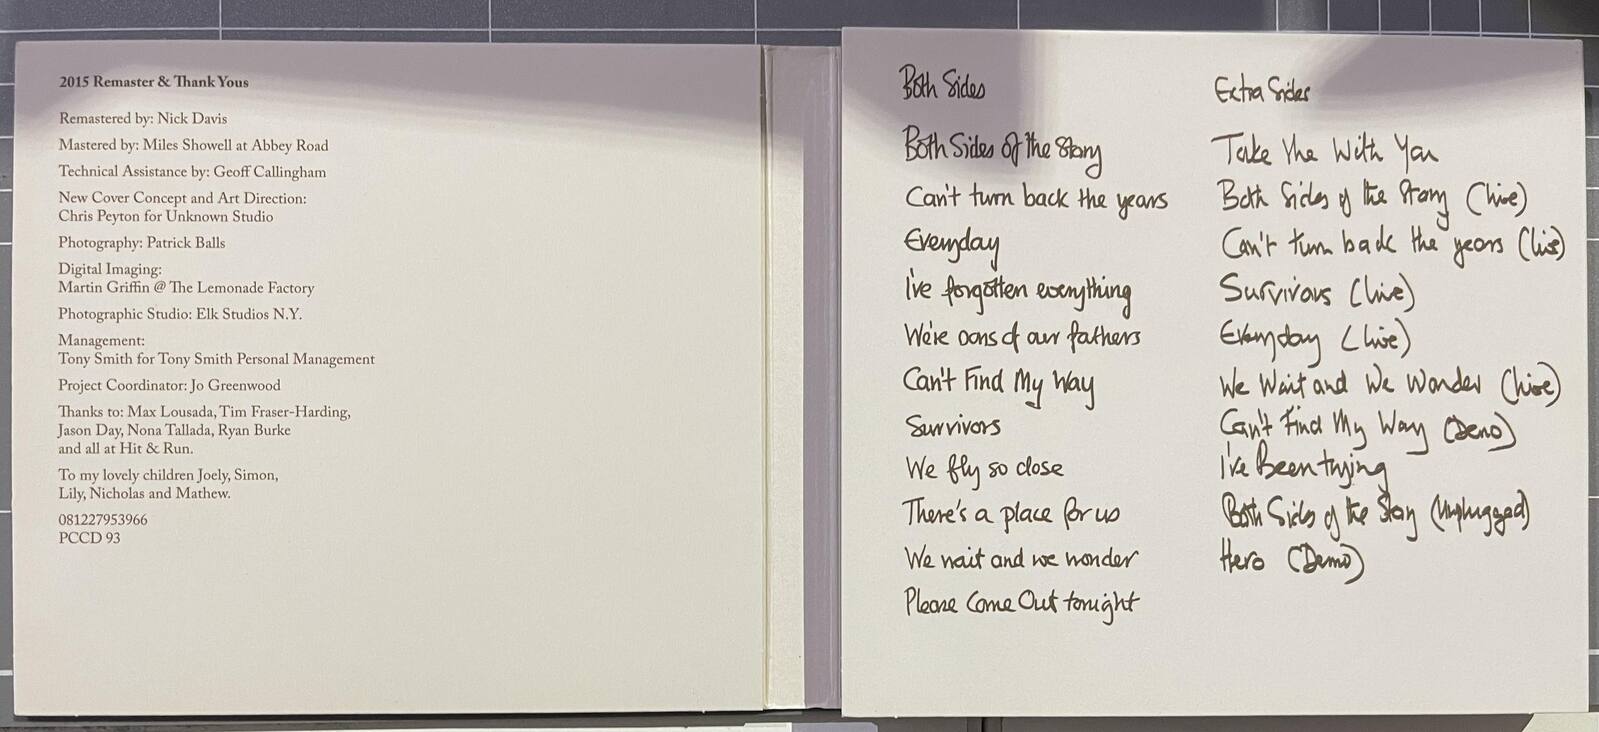 2015 Remaster & Thank Yous
Remastered by: Nick Davis
Mastered by: Miles Showell at Abbey Road
Technical Assistance by: Geoff Callingham
New Cover Concept and Art Direction:
Chris Peyton for Unknown Studio
Photography: Patrick Balls
Digital Imaging:
Martin Griffin @ The Lemonade Factory
Photographic Studio: Elk Studios N.Y.
Management:
Tony Smith for Tony Smith Personal Management
Project Coordinator: Jo Greenwood
Thanks to: Max Lousada, Tim Fraser-Harding,
Jason Day, Nona Tallada, Ryan Burke
and all at Hit & Run.
To my lovely children Joely, Simon,
Lily, Nicholas and Mathew.
081227953966
PCCD 93
Both Sides
Both Sides Of the Story
Can't turn back the years
Everyday
I've forgotten everything
We're sons of our fathers
Can't Find My Way
Survivors
We fly so close
There's a place for us
We wait and we wonder
Please Come Out tonight
Extra Sides
Take Me With You
Both Sides of the Story (Live)
Can't turn back the years (Live)
Survivors (Live)
Everyday (Live)
We Wait and We Wonder (Live)
Can't Find My Way (Demo)
I've Been trying
Both Sides of the Story (Unplugged)
Hero (Demo)